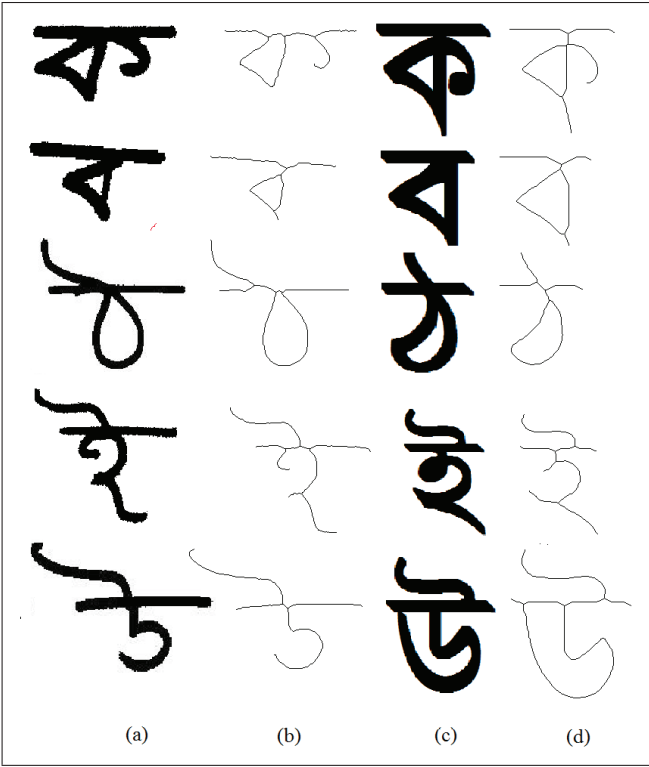 ক ক ক ক
ব ব ব ব
ঠ ঠ ঠ ঠ
ই ই ই ই
উ উ উ উ
(a) (b) (c) (d)